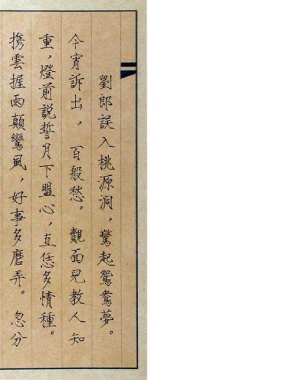 劉郎誤入桃源洞，驚起鴛鴦夢。
今宵訴出，百般愁。覿面兒教人知
重，燈前説誓月下盟心，直恁多情種。
携雲握雨顛鸞風，好事多磨弄。忽分